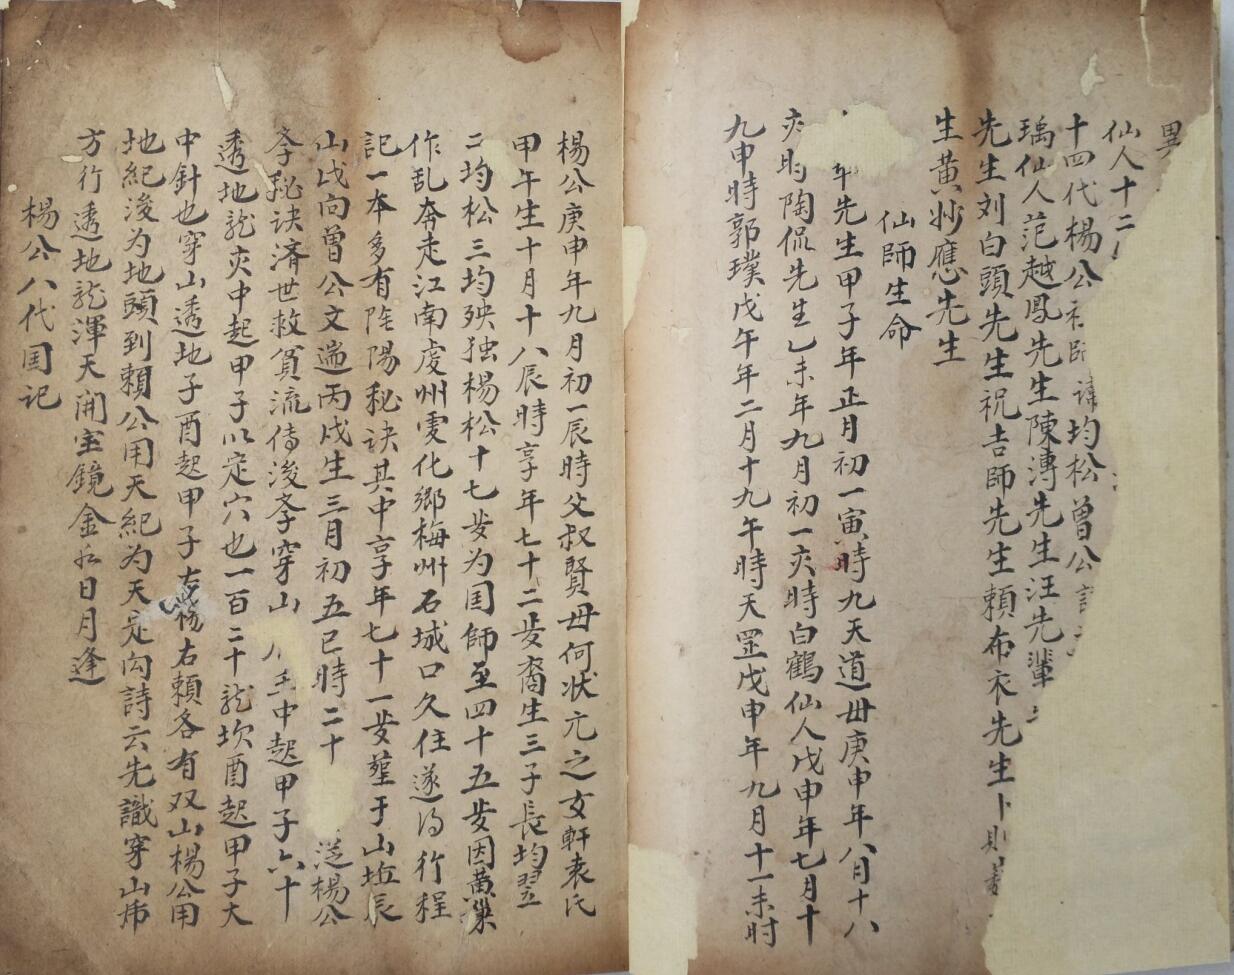 異
仙人十二
十四代楊公祖師諱均松曾公
瑀仙人范越鳳先生陳溥先生汪先輩
先生刘白頭先生祝吉師先生賴布衣先生卜則
生黄妙應先生
仙師生命
年先生甲子年正月初一寅時九天道毌庚申年八月十八
亥时陶侃先生乙未年九月初一亥時白鶴仙人戊申年七月十
九申時郭璞戊午年二月十九午時天罡戊申年九月十一未时
楊公庚申年九月初一辰時父叔賢毌何状元之女軒袁氏
甲午生十月十八辰時享年七十二歩裔生三子長均翌
二均松三均殃独楊松十七歩为国師至四十五歩因黄巢
作乱奔走江南虔州虔化鄉梅州石城口久住遂得行程
記一本多有陰陽秘诀其中享年七十一歩塟于山坵辰
山戌向曾公文遄丙戌生三月初五巳時二十楊公
夅秘诀済世救貧流傳後夅穿山中起甲子六十
透地龍亥中起甲子以定穴也一百二十龍坎酉起甲子大
中針也穿山透地子酉起甲子右賴各有双山楊公用
地紀後为地頭到賴公用天紀为天定向詩云先識穿山
方行透地龍渾天開宝鏡金水日月逢
楊公八代国记